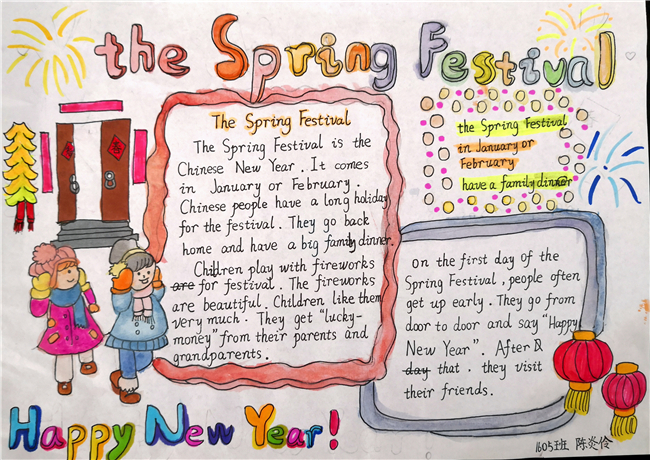 the Spring Festival
The Spring Festival
The Spring Festival is the
Chinese New Year. It comes
in January or February.
Chinese people have a long holiday
for the festival. They go back
home and have a big family dinner.
Children play with fireworks
are for festival. The fireworks
are beautiful. Children like them
very much. They get "lucky-
money" from their parents and
grandparents.
the Spring Festival
in January or
February
have a family dinner
On the first day of the
Spring Festival, people often
get up early. They go from
door to door and say "Happy
New Year". After
day that. they visit
their friends.
Happy New Year!
1605班 陈炎伶